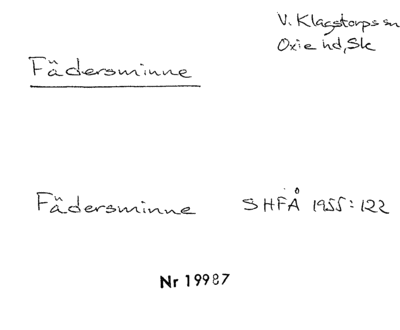 V. Klagstorps sn
Oxie hd, Sk
Fädersminne
Fädersminne SHFÅ 1955:122
Nr 19987